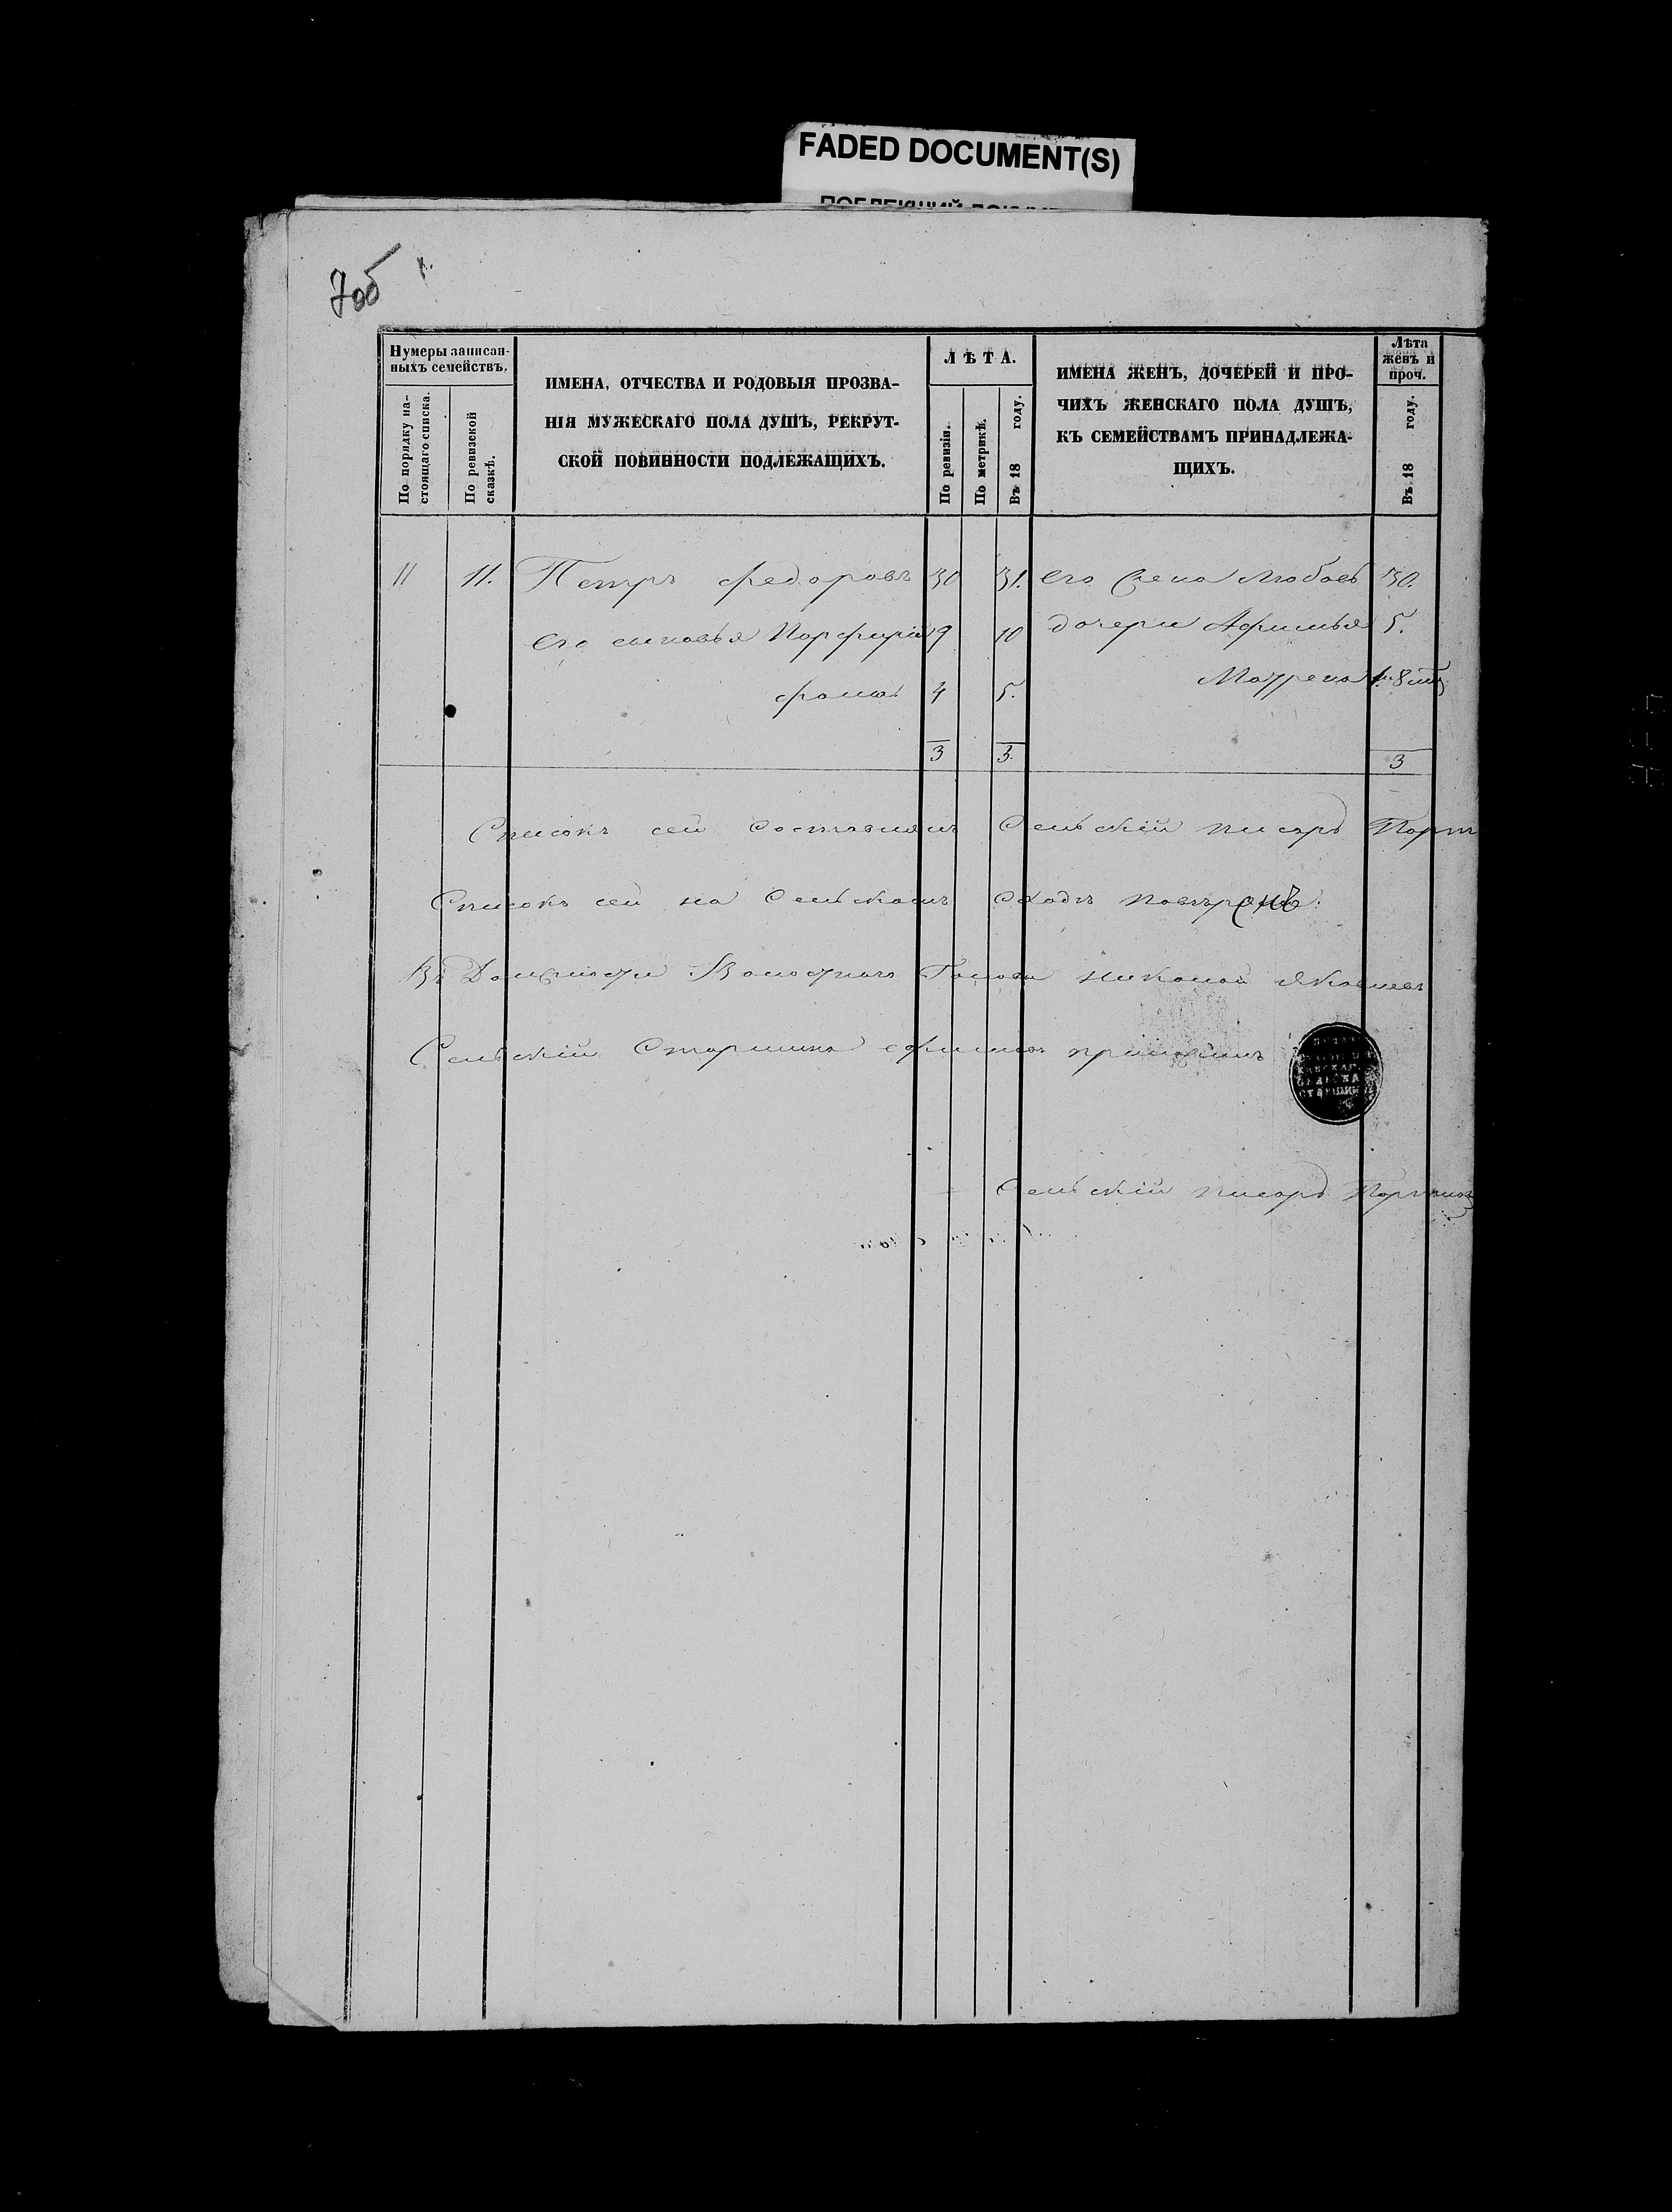 FADED DOCUMENT(S)
7об
Нумеры записан-
ныхъ семействъ.
По порядку на-
стоящаго списка.
По ревизской
сказкѣ.
ИМЕНА, ОТЧЕСТВА И РОДОВЫЯ ПРОЗВА-
НІЯ МУЖЕСКАГО ПОЛА ДУШЪ, РЕКРУТ-
СКОЙ ПОВИННОСТИ ПОДЛЕЖАЩИХЪ.
ЛѢТА.
По ревизіи.
По метрикѣ.
Въ 18 году.
ИМЕНА ЖЕНЪ, ДОЧЕРЕЙ И ПРО-
ЧИХЪ ЖЕНСКАГО ПОЛА ДУШЪ,
КЪ СЕМЕЙСТВАМЪ ПРИНАДЛЕЖА-
ЩИХЪ.
Лѣта
женъ и
проч.
Въ 18 году.
11 11. Петръ Федоровъ 30 31. его жена Любовь 30.
его сыновья Порфирий 9 10 дочери Афимья 5.
фома 4 5. Матрена
3 3. 3
Списокъ сей составлялъ Сельскій писарь
Списокъ сей на Сельскомъ Сходѣ повѣренъ
Въ Должности Волостнаго Головы Яковлевъ
Сельскій Старшина
Сельскій писарь